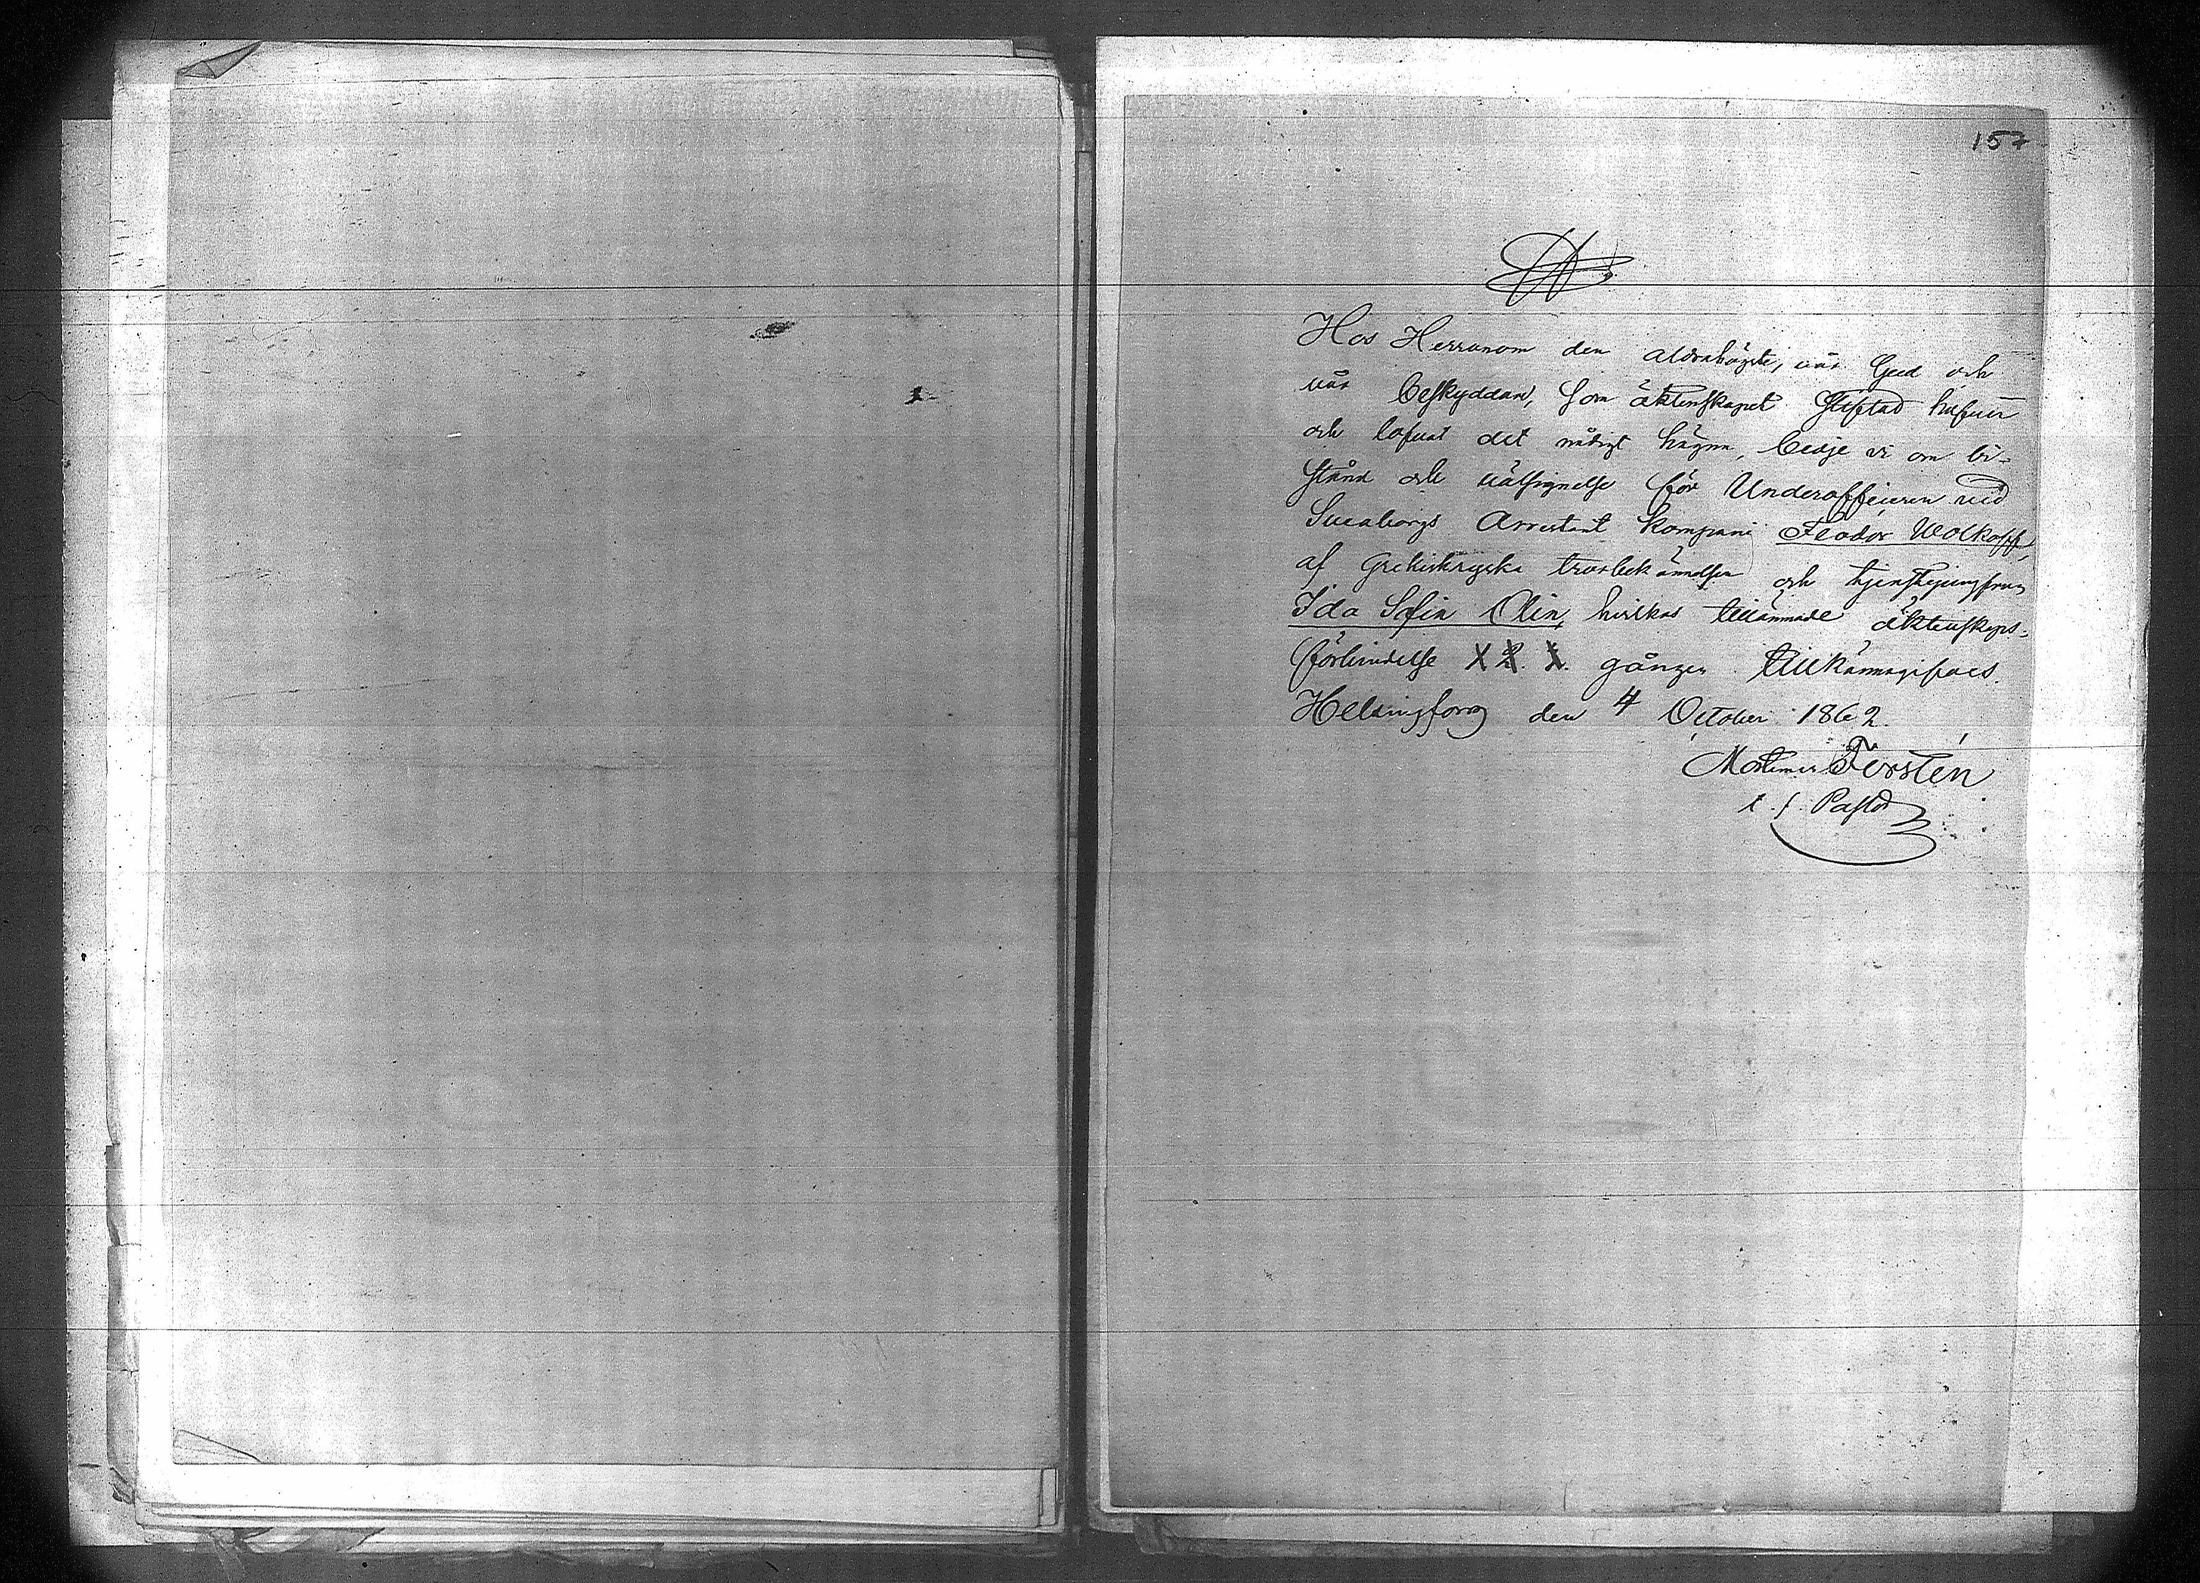 157
Hos Herranom den aldrahögste, vår Gud och
vår beskyddare, som äktenskapet stiftad hafver
och lofvat det nådigt hägna, bedje vi om bi-
stånd och välsignelse för Underofficieren vid
Sveaborgs Arrestant kompani Feodor Wolkoff,
af Grekiskryska trosbekännelsen och tjenstejungfrun
Ida Sofia Olin, hvilkas tillämnade äktenskaps-
förbindelse gången tillkännagifves.
Helsingfors den 4 October 1862.
Mortimer Fersten
t. f. Pastor